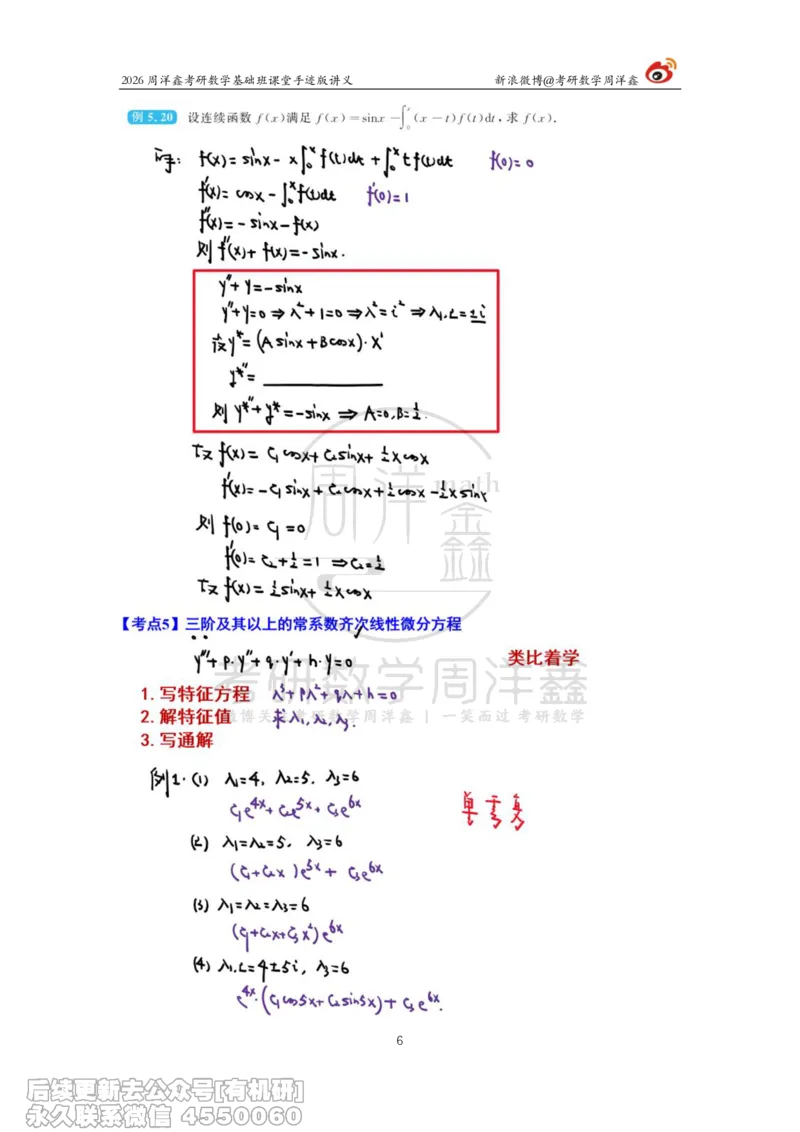 2026周洋鑫考研数学基础班课堂手迹版讲义 新浪微博@考研数学周洋鑫
例5.20 设连续函数 f(x)满足 f(x)=sinx-∫₀ˣ(x-t)f(t)dt,求 f(x).
f(x)=sinx-x∫₀ˣf(t)dt+∫₀ˣtf(t)dt f(0)=0
f'(x)=cosx-∫₀ˣf(t)dt f'(0)=1
f''(x)=-sinx-f(x)
则 f''(x)+f(x)=-sinx.
y''+y=-sinx
y''+y=0⇒λ²+1=0⇒λ²=i²⇒λ₁,₂=±i
设y*=(Asinx+Bcosx)·x¹
y*''=
则 y*''+y*=-sinx⇒A=0,B=½.
故 f(x)=C₁cosx+C₂sinx+½xcosx
f'(x)=-C₁sinx+C₂cosx+½cosx-½xsinx
则 f(0)=C₁=0
f'(0)=C₂+½=1⇒C₂=½
故 f(x)=½sinx+½xcosx
周洋鑫 math
【考点5】三阶及其以上的常系数齐次线性微分方程
y'''+p·y''+q·y'+h·y=0 类比着学
考研数学周洋鑫
1. 写特征方程 λ³+pλ²+qλ+h=0
2. 解特征值 求λ₁,λ₂,λ₃.
微博关注考研数学周洋鑫 | 一笑而过 考研数学
3. 写通解
例1.(1) λ₁=4, λ₂=5, λ₃=6
C₁e⁴ˣ+C₂e⁵ˣ+C₃e⁶ˣ
单 重 复
(2) λ₁=λ₂=5, λ₃=6
(C₁+C₂x)e⁵ˣ+C₃e⁶ˣ
(3) λ₁=λ₂=λ₃=6
(C₁+C₂x+C₃x²)e⁶ˣ
(4) λ₁,₂=4±5i, λ₃=6
e⁴ˣ·(C₁cos5x+C₂sin5x)+C₃e⁶ˣ.
6
后续更新去公众号[有机研]
永久联系微信 4550060